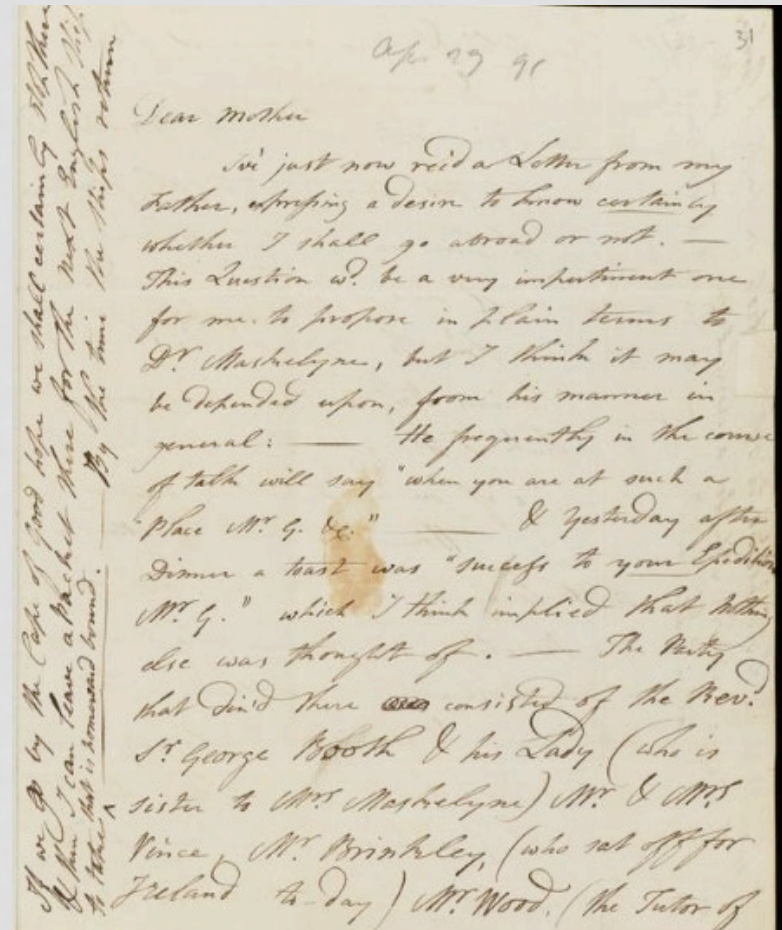 31
Ap. 29 91
Dear Mother
I've just now rec'd a Letter from my
Father, expressing a desire to know certainly
whether I shall go abroad or not. —
This Question wd. be a very impertinent one
for me to propose in plain terms to
Dr Maskelyne, but I think it may
be depended upon, from his manner in
general: — He frequently in the course
of talk will say "when you are at such a
"Place Mr. G. &c." — & yesterday after
Dinner a toast was "success to your Expedition
Mr. G." which I think implied that nothing
else was thought of. — The Party
that din'd there consisted of the Revd.
Sr. George Booth & his Lady (who is
sister to Mrs Maskelyne) Mr. & Mrs
Vince, Mr Brinkley, (who sat off for
Ireland to-day) Mr. Wood. (the Tutor of
If we go by the Cape of Good hope we shall certainly stop there
& then I can leave a packet there for the next English Ship
to take ^ that is homeward bound. — By the time the ships return